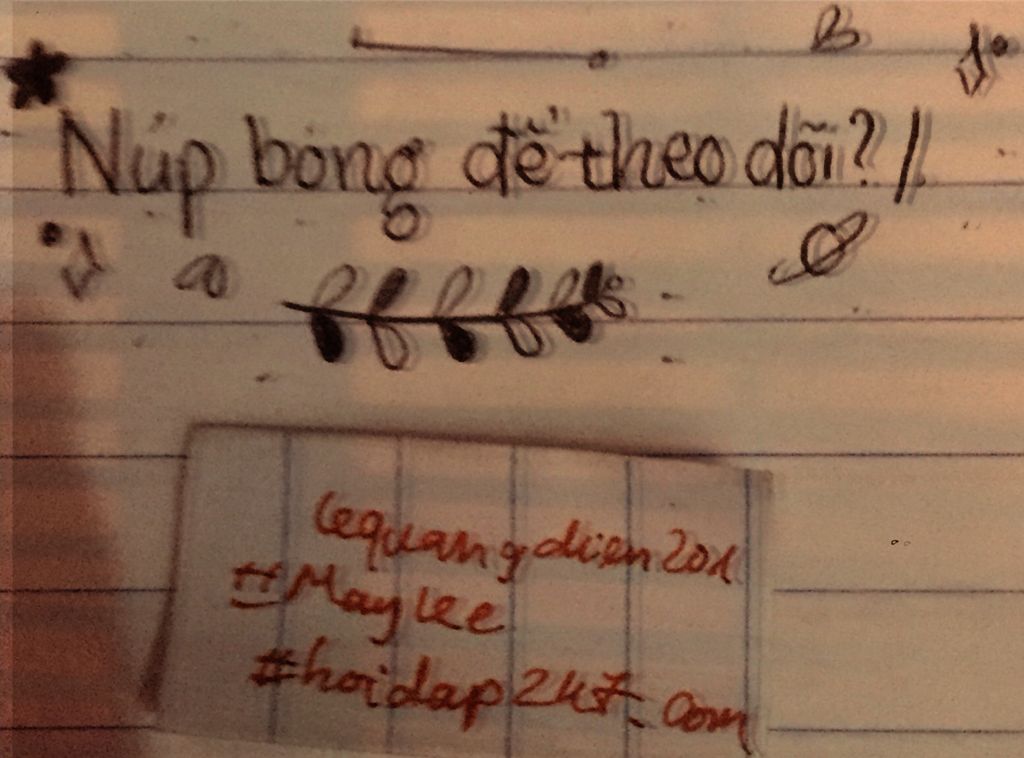 Núp bóng để theo dõi?/
lequangdien201
#Maylee
#hoidap247.com